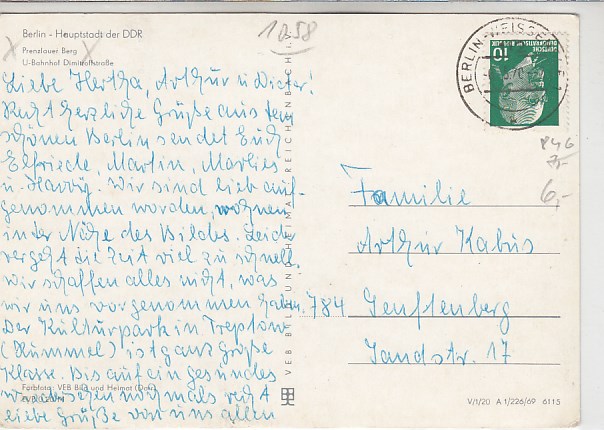 Berlin - Hauptstadt der DDR
Prenzlauer Berg
U-Bahnhof Dimitroffstraße
1058
Liebe Hertha, Arthur u. Dieter!
Recht herzliche Grüße aus dem
schönen Berlin sendet Euch
Elfriede, Martin, Marlies
u. Harry. Wir sind lieb auf-
genommen worden, wohnen
in der Nähe des Bildes. Leider
vergeht die Zeit viel zu schnell.
wir schaffen alles nicht, was
wir uns vorgenommen haben.
Der Kulturpark in Treptow
(Rummel) ist ganz große
Klasse. Bis auf ein gesundes
nochmals recht
liebe Grüße von uns allen
Farbfoto: VEB Bild und Heimat
VEB BILD UND HEIMAT REICHENBACH I. V.
BERLIN-WEISSENSEE 1
10
DEUTSCHE
DEMOKRATISCHE REPUBLIK
6,-
Familie
Arthur Kabus
784 Senftenberg
Landstr. 17
V/1/20 A 1/226/69 6115